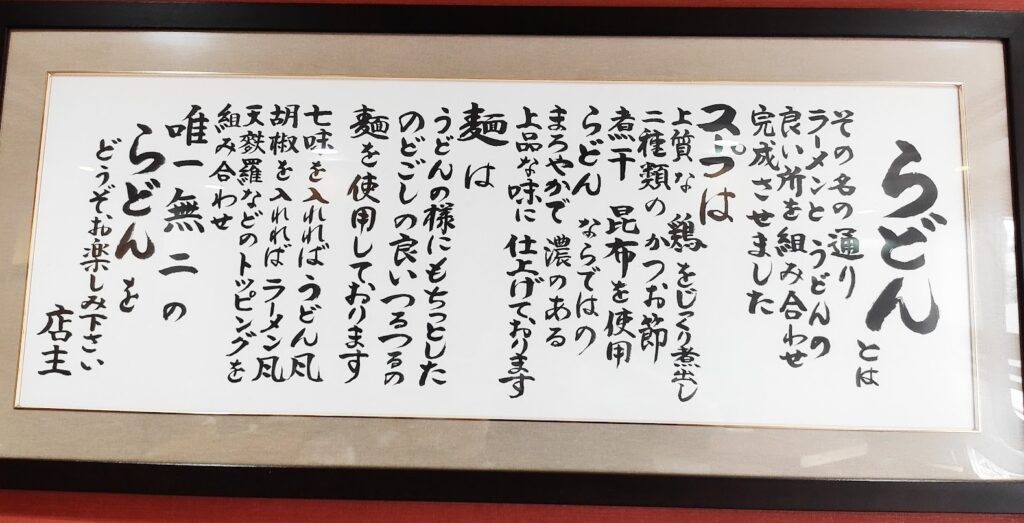 らどん とは
その名の通り
ラーメンと うどんの
良い所を組み合わせ
完成させました
スープは
上質な 鶏をじっくり煮出し
二種類の かつお節
煮干 昆布を使用
らどん ならではの
まろやかで 濃のある
上品な味に 仕上げております
麺は
うどんの様にもちっとした
のどごしの良いつるつるの
麺を使用しております
七味を入れれば うどん风
胡椒を入れれば ラーメン风
天麩羅などのトッピングを
組み合わせ
唯一無二の
らどんを
どうぞ、お楽しみ下さい
店主